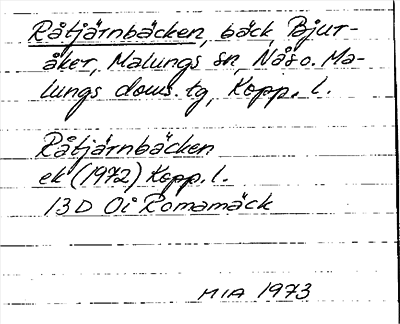 Råtjärnbäcken, bäck, Bjur-
åker, Malungs sn, Nås o. Ma-
lungs doms. tg, Kopp. l.
Råtjärnbäcken
ek (1972) Kopp. l.
13D 0i Romamäck
MIA 1973